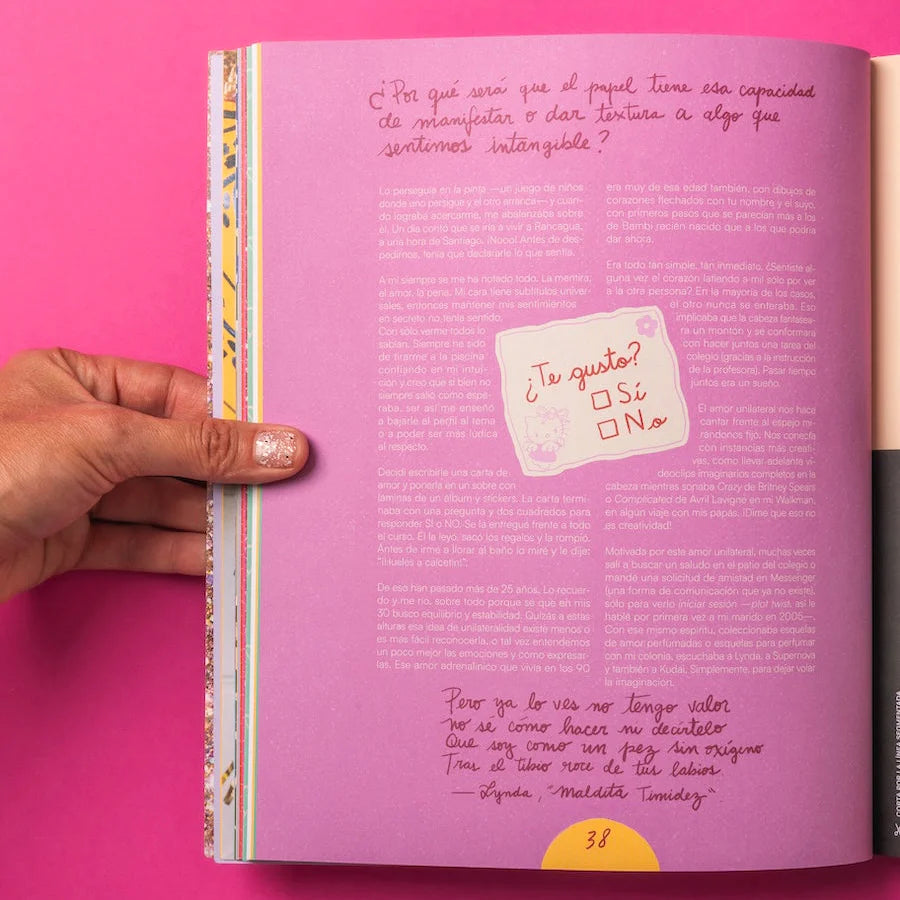 ¿Por qué será que el papel tiene esa capacidad
de manifestar o dar textura a algo que
sentimos intangible?
Lo perseguía en la pinta —un juego de niños
donde uno persigue y el otro arranca— y cuan-
do lograba acercarme, me abalanzaba sobre
él. Un día contó que se iría a vivir a Rancagua,
a una hora de Santiago. ¡Nooo! Antes de des-
pedirnos, tenía que declararle lo que sentía.
A mí siempre se me ha notado todo. La mentira,
el amor, la pena. Mi cara tiene subtítulos univer-
sales, entonces mantener mis sentimientos
en secreto no tenía sentido.
Con sólo verme todos lo
sabían. Siempre he sido
de tirarme a la piscina
confiando en mi intui-
ción y creo que si bien no
siempre salió como espe-
raba, ser así me enseñó
a bajarle el perfil al tema
o a poder ser más lúdica
al respecto.
Decidí escribirle una carta de
amor y ponerla en un sobre con
láminas de un álbum y stickers. La carta termi-
naba con una pregunta y dos cuadrados para
responder SÍ o NO. Se la entregué frente a todo
el curso. Él la leyó, sacó los regalos y la rompió.
Antes de irme a llorar al baño lo miré y le dije:
"¡Hueles a calcetín!".
De eso han pasado más de 25 años. Lo recuer-
do y me río, sobre todo porque sé que en mis
30 busco equilibrio y estabilidad. Quizás a estas
alturas esa idea de unilateralidad existe menos o
es más fácil reconocerla, o tal vez entendemos
un poco mejor las emociones y cómo expresar-
las. Ese amor adrenalínico que vivía en los 90
era muy de esa edad también, con dibujos de
corazones flechados con tu nombre y el suyo,
con primeros pasos que se parecían más a los
de Bambi recién nacido que a los que podría
dar ahora.
Era todo tan simple, tan inmediato. ¿Sentiste al-
guna vez el corazón latiendo a mil sólo por ver
a la otra persona? En la mayoría de los casos,
el otro nunca se enteraba. Eso
implicaba que la cabeza fantasea-
ra un montón y se conformara
con hacer juntos una tarea del
colegio (gracias a la instrucción
de la profesora). Pasar tiempo
juntos era un sueño.
El amor unilateral nos hace
cantar frente al espejo mi-
rándonos fijo. Nos conecta
con instancias más creati-
vas, como llevar adelante vi-
deoclips imaginarios completos en la
cabeza mientras sonaba Crazy de Britney Spears
o Complicated de Avril Lavigne en mi Walkman,
en algún viaje con mis papás. ¡Dime que eso no
es creatividad!
Motivada por este amor unilateral, muchas veces
salí a buscar un saludo en el patio del colegio o
mandé una solicitud de amistad en Messenger
(una forma de comunicación que ya no existe),
sólo para verlo iniciar sesión —plot twist, así le
hablé por primera vez a mi marido en 2005—.
Con ese mismo espíritu, coleccionaba esquelas
de amor perfumadas o esquelas para perfumar
con mi colonia, escuchaba a Lynda, a Supernova
y también a Kudai. Simplemente, para dejar volar
la imaginación.
¿Te gusto?
Sí
No
Pero ya lo ves no tengo valor
no sé cómo hacer ni decírtelo
Que soy como un pez sin oxígeno
Tras el tibio roce de tus labios.
— Lynda, "Maldita Timidez".
38
CORTA POR LA LÍNEA SEGMENTADA